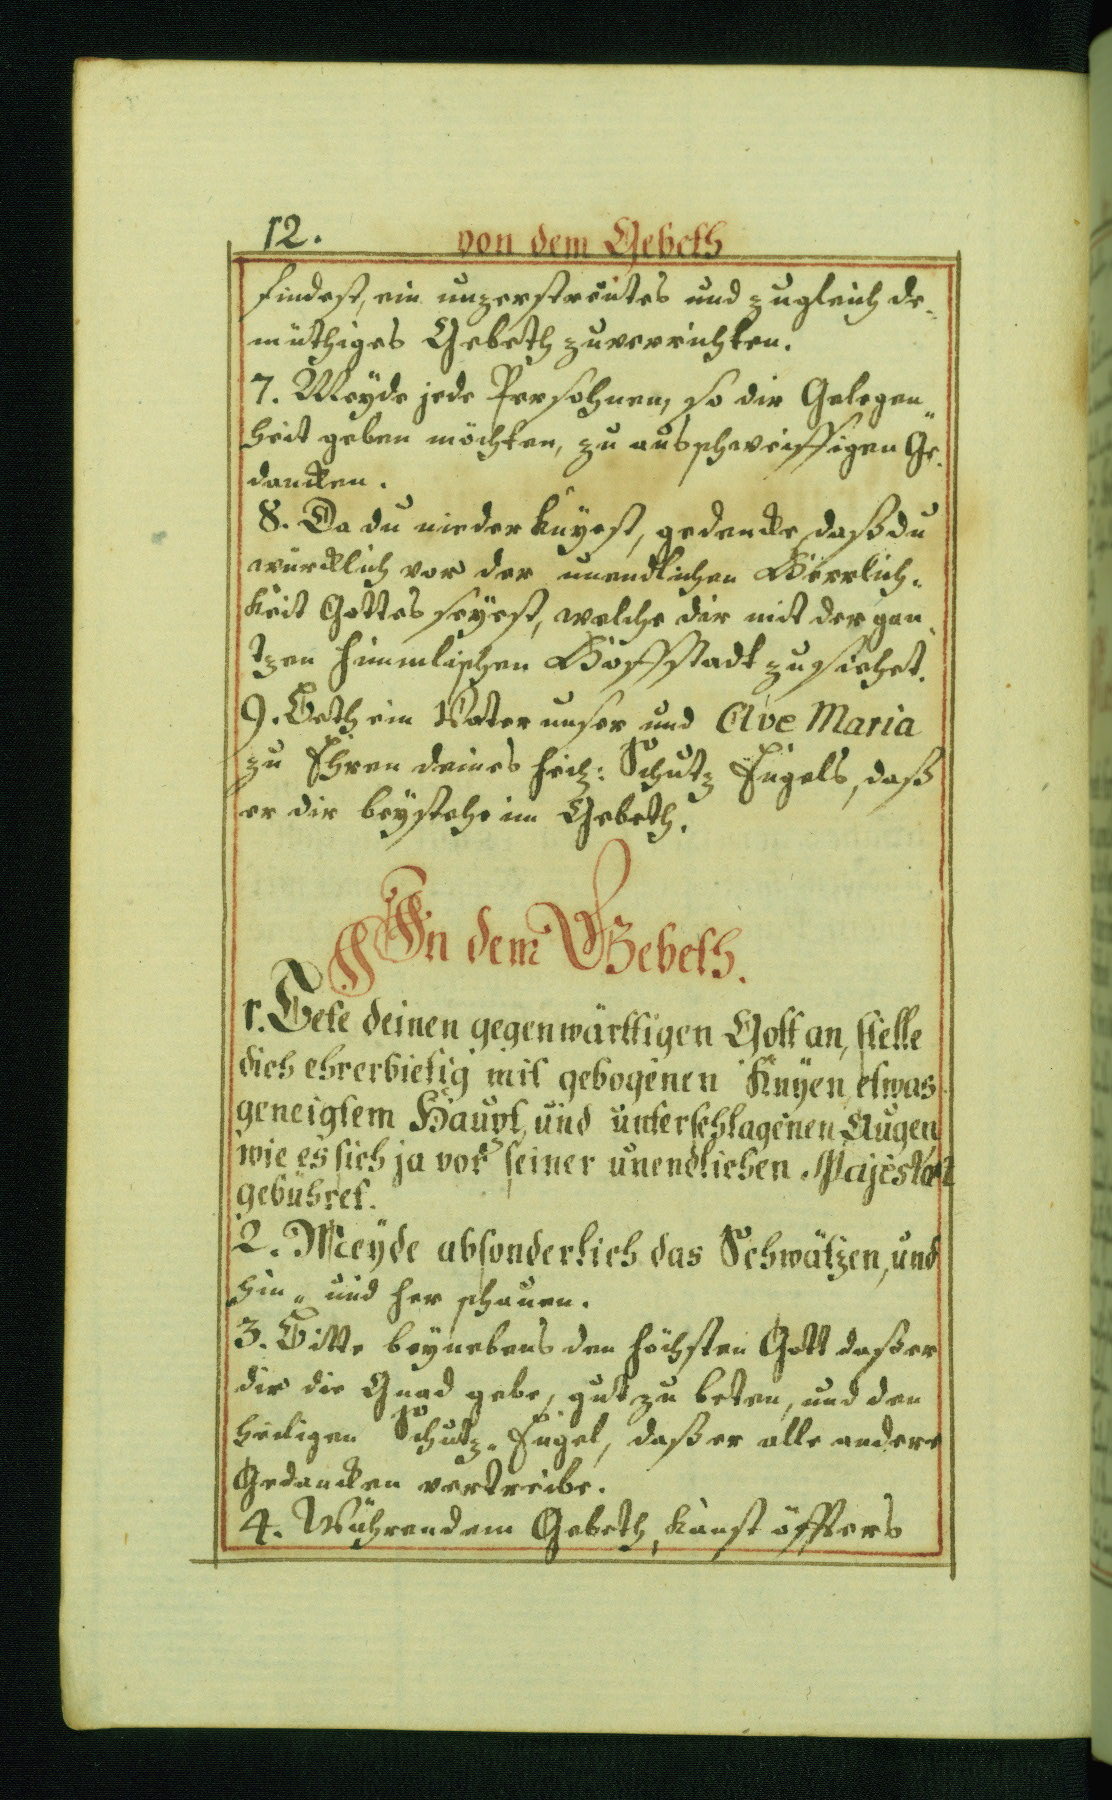 12.
von dem Gebeth
findest, ein unzerstreütes und zugleich de-
müthiges Gebeth zuverrichten.
7. Meyde jede Persohnen, so dir Gelegen„
heit geben möchten, zu ausschweiffigen Ge-
dancken.
8. Da du nieder knÿest, gedencke daß du
würcklich vor der unendlichen Herrlich-
keit Gottes seÿest, welche dir mit der gan-
tzen himmlischen Hoffstadt zusiehet.
9. Beth ein Vater unser und Ave Maria
zu Ehren deines heilg: Schutz Engels, daß
er dir beÿstehe im Gebeth.
In dem Gebeth.
1. Bete deinen gegenwärttigen Gott an, stelle
dich ehrerbietig mit gebogenen Knyen, etwas
geneigtem Haupt, und unterschlagenen Augen
wie es sich ja vor seiner unendlichen Majestät
gebühret.
2. Meÿde absonderlich das Schwätzen, und
hin„ und her schauen.
3. Bitte beÿnebens den höchsten Gott daß er
dir die Gnad gebe, gut zu beten, und den
heiligen Schutz„ Engel, daß er alle andere
Gedancken vertreibe.
4. Während dem Gebeth, kanst öffters